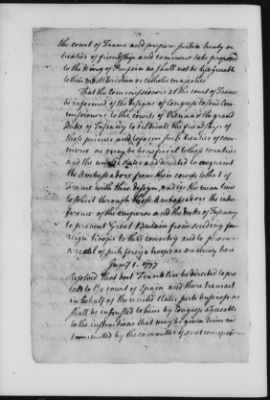 the court of France and prepare such a treaty or
treaties of friendship and commerce to be proposed
to the King of Prussia as shall not be disagreeable
to their most Christian or catholic majesties
That the Commissioners at the court of France
be informed of the design of Congress to send Com
missioners to the courts of Vienna & the grand
Duke of Tuscany to cultivate the friendship of
those princes and to form such treaties of com
merce as may be beneficial to their countries
and the united states and directed to acquaint
the Ambassadors from their courts to that of
France with these designs, and in the mean time
to solicit through those Ambassadors the inter
ference of the emperor and the Duke of Tuscany
to prevent Great Britain from sending fo
reign troops to this country and to procure
a recal of such foreign troops as are already here
Jany 1. 1777
Resolved that doct Franklin be directed to pro
ceed to the court of Spain and there transact
in behalf of the united states such business as
shall be intrusted to him by Congress agreeable
to the instructions that may be given him an
transmitted by the committee of